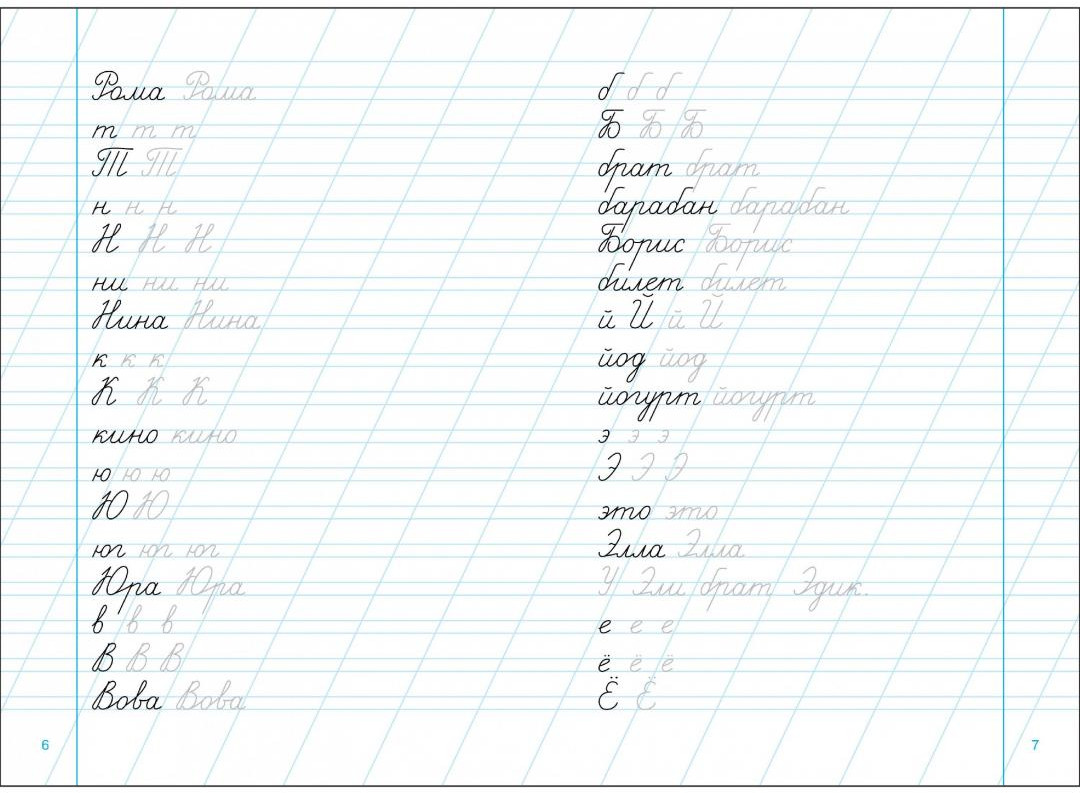 Рома Рома
т т т
Т Т
н н н
Н Н Н
ни ни ни
Нина Нина
к к к
К К К
кино кино
ю ю ю
Ю Ю
юг юг юг
Юра Юра
в в в
В В В
Вова Вова
6
б б б
Б Б Б
брат брат
барабан барабан
Борис Борис
билет билет
й Й й Й
йод йод
йогурт йогурт
э э э
Э Э Э
это это
Элла Элла
У Эли брат Эдик.
е е е
ё ё ё
Ё Ё
7